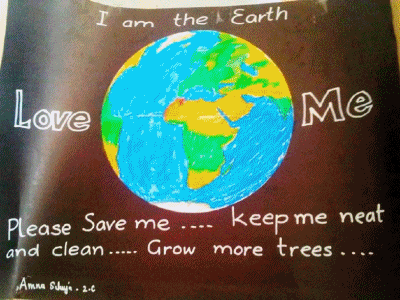 I am the Earth
Love Me
Please Save me .... keep me neat
and clean ..... Grow more trees ....
Amna - 2-C